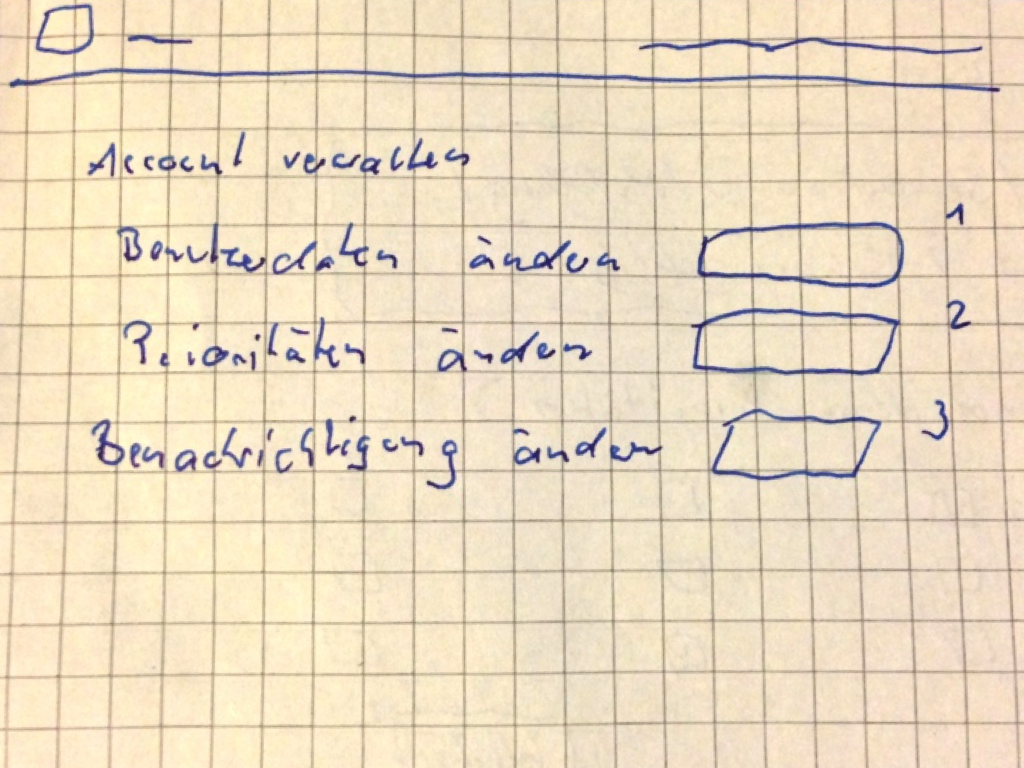 Account verwalten
Benutzerdaten ändern 1
Prioritäten ändern 2
Benachrichtigung ändern 3